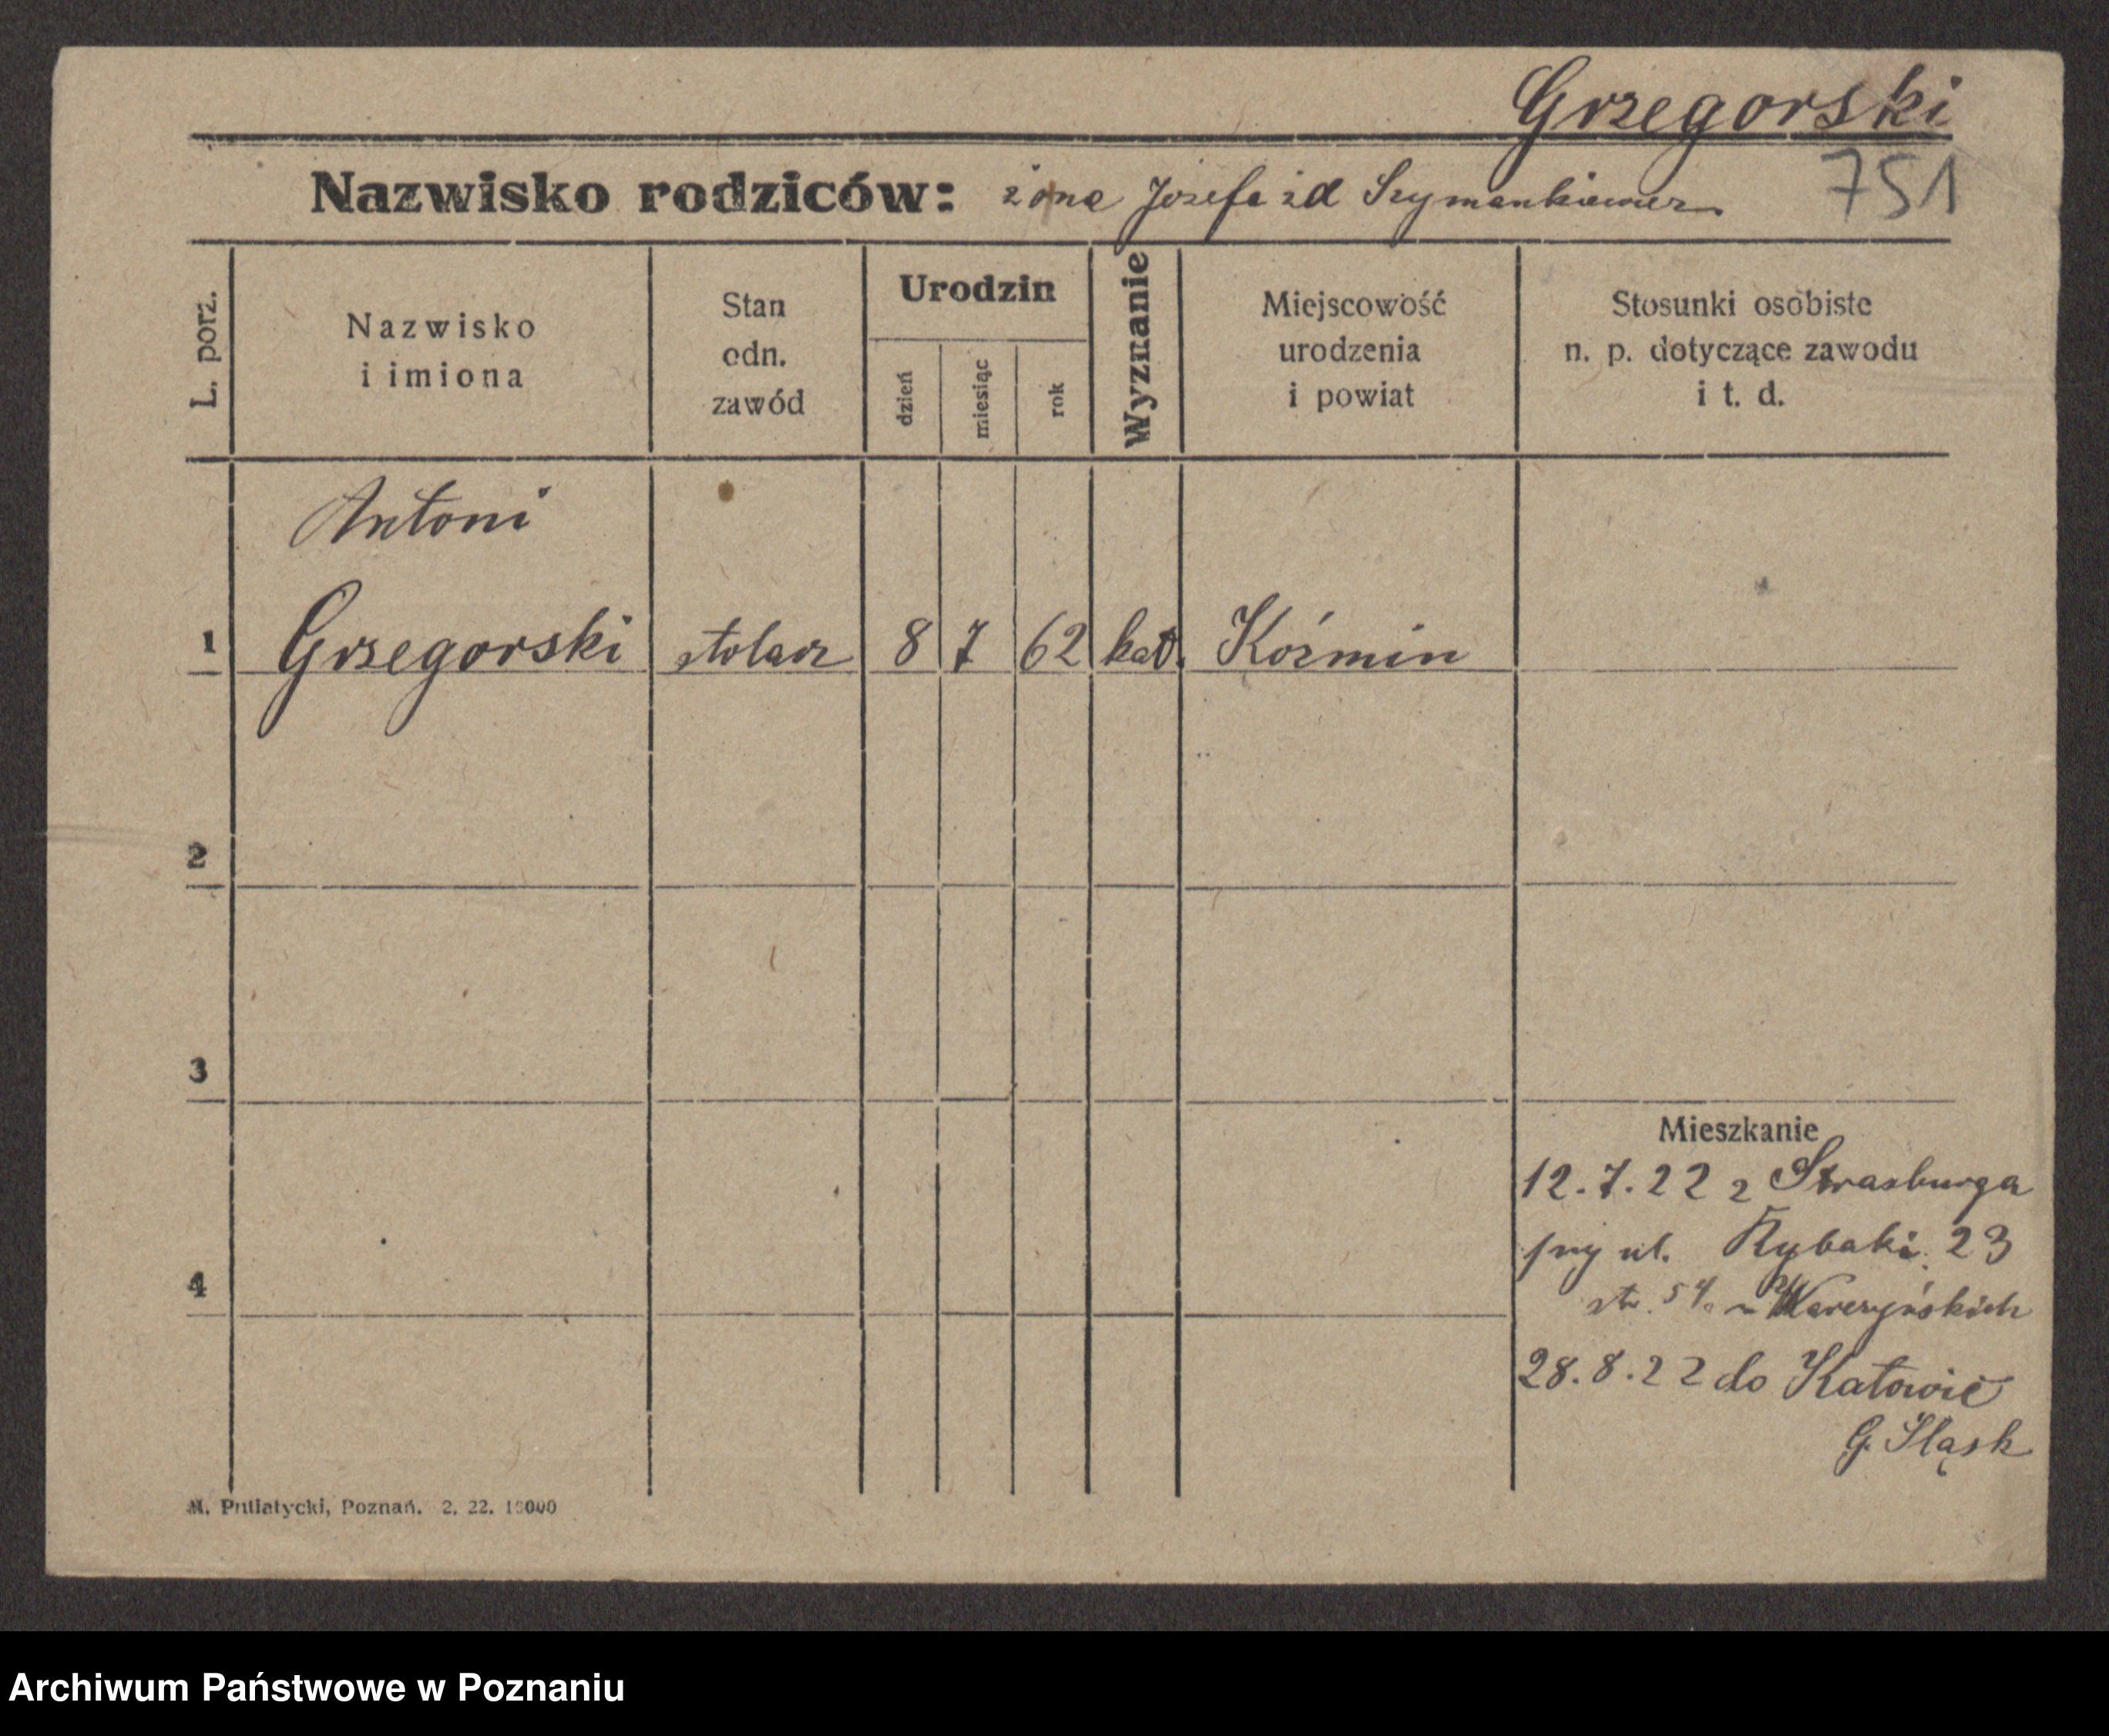 Grzegorski
751
Nazwisko rodziców: żona Józefa żd Szymankiewicz
L. porz.
Nazwisko
i imiona
Stan
odn.
zawód
Urodzin
dzień
miesiąc
rok
Wyznanie
Miejscowość
urodzenia
i powiat
Stosunki osobiste
n. p. dotyczące zawodu
i t. d.
Antoni
1 Grzegorski stolarz 8 7 62 kat. Koźmin
2
3
4
Mieszkanie
12.7.22 z Strasburga
przy ul. Rybaki 23
28.8.22 do Katowic
G. Śląsk
M. Putiatycki, Poznań. 2. 22.
Archiwum Państwowe w Poznaniu